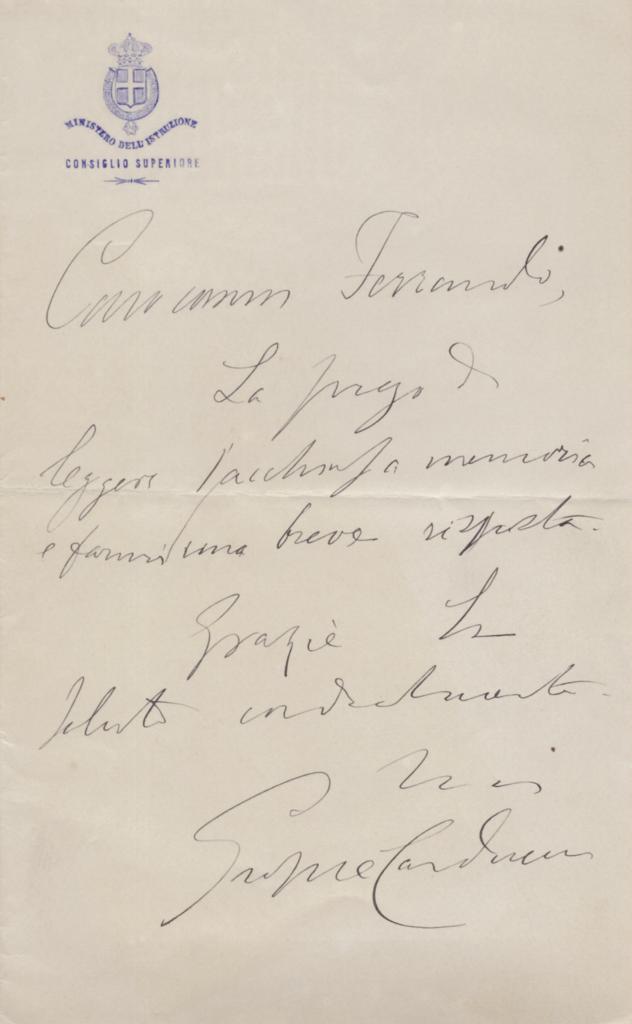 MINISTERO DELL'ISTRUZIONE
CONSIGLIO SUPERIORE
Ferrando,
La prego di
leggere l'acchiusa memoria
e farmi una breve risposta.
Grazie La
saluto cordialmente.
Giosue Carducci